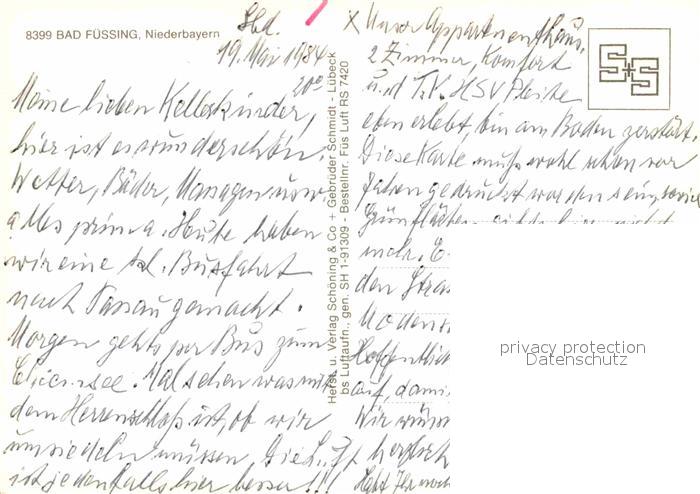 8399 BAD FÜSSING, Niederbayern
Sbd.
19. Mai 1984
20°°
Meine lieben Kellerkinder,
hier ist es wunderschön.
Wetter, Bäder, Massagen usw.
alles prima. Heute haben
wir eine kl. Busfahrt
nach Passau gemacht.
Morgen gehts per Bus zum
Chiemsee. Mal sehen was mit
dem Herrenschloß ist, ob wir
umsiedeln müssen. Die Luft
ist jedenfalls hier besser!!!
Herst. u. Verlag Schöning & Co + Gebrüder Schmidt - Lübeck
bs Luftaufn., gen. SH 1-91309 - Bestellnr. Füs Luft RS 7420
x Unser Appartementhaus.
2 Zimmer, Komfort
und T.V. HSV Pleite
eben erlebt, bin am Boden zerstört.
Diese Karte muß wohl schon vor
Jahren gedruckt worden sein, soviel
Grünflächen gibts hier nicht
mehr.
den
Hoffentlich
auf, dami
Wir wün
herzlich
Habt Ihr noch
S+S
privacy protection
Datenschutz